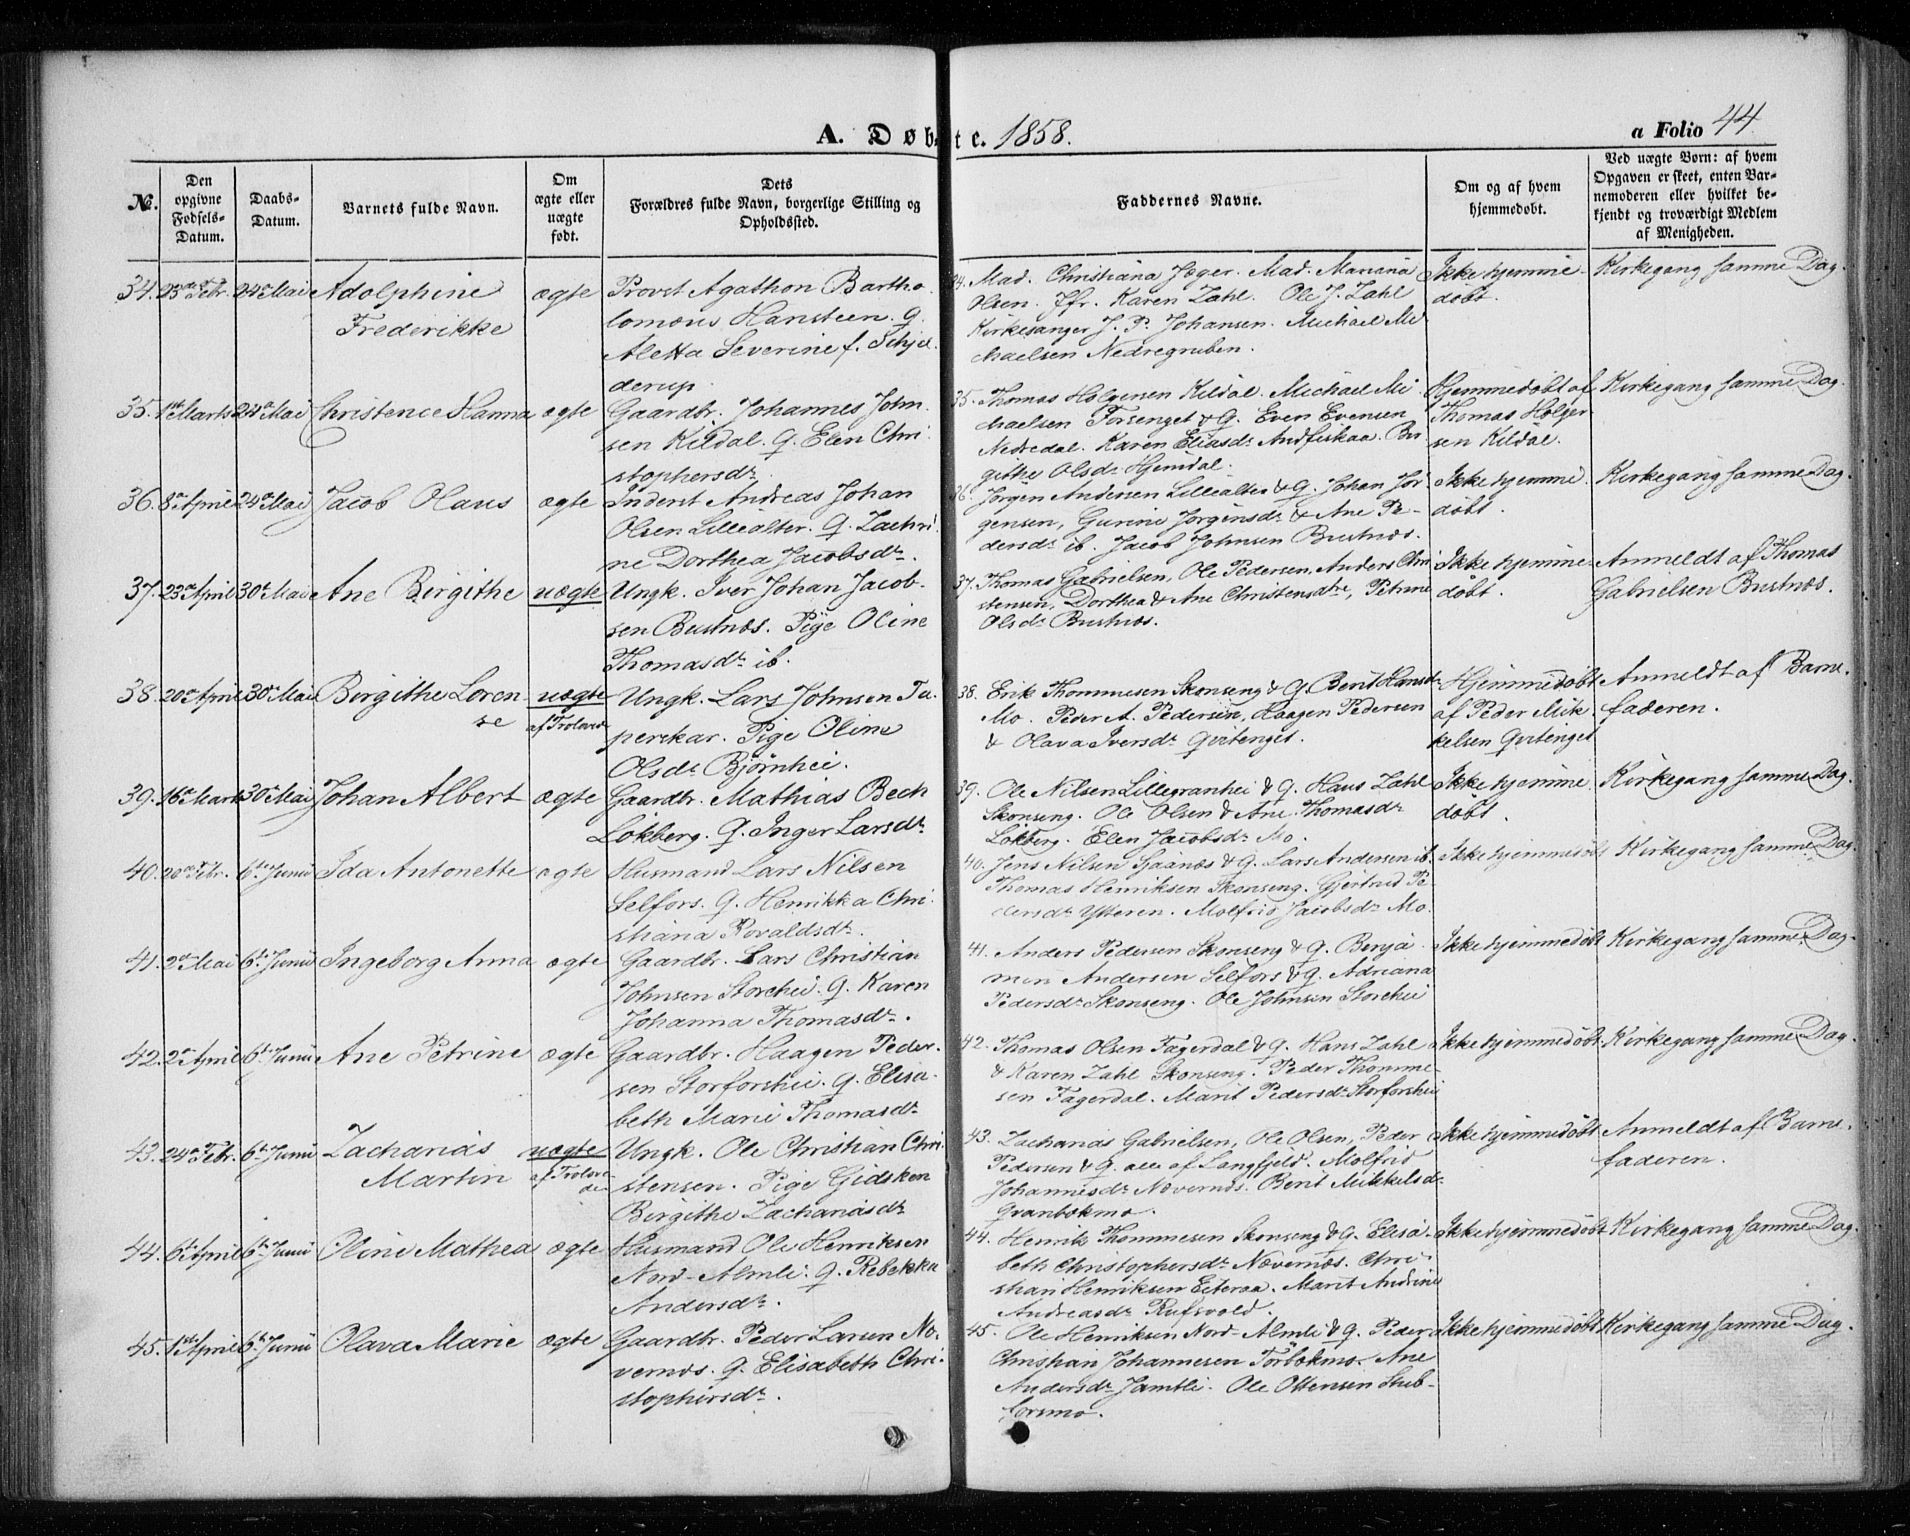 A. Døbte. 1858.
a Folio 44
No.
Den opgivne Fødsels-Datum.
Daabs-Datum.
Barnets fulde Navn.
Om ægte eller uægte født.
Dets Forældres fulde Navn, borgerlige Stilling og Opholdssted.
Faddernes Navne.
Om og af hvem hjemmedøbt.
Ved uægte Børn: af hvem Opgaven er skeet, enten Barnemoderen eller hvilket bekjendt og troværdigt Medlem af Menigheden.
34. 23de Febr. 24de Mai Adolphine Frederikke ægte
Provst Agathon Bartho-
lomæus Hansteen. G.
Aletta Severine f. Schjel-
derup.
34. Mad. Christiana Jæger. Mad. Mariana
Olsen. Jfr. Karen Zahl. Ole J. Zahl
Kirkesanger J. P. Johansen. Michael Mi-
chaelsen Nedregruben.
Ikke hjemme-
døbt.
Kirkegang samme Dag.
35. 1ste Marts 24de Mai Christence Hanna ægte
Gaardbr. Johannes John-
sen Kildal. G. Elen Chri-
stophersdr.
35. Thomas Holgersen Kildal. Michael Mi-
chaelsen Forsenget & G. Even Evensen
Nedredal. Karen Eliasdr. Andfiskaa. Bir-
githe Olsdr. Hjemdal.
Hjemmedøbt af
Thomas Holger-
sen Kildal.
Kirkegang samme Dag.
36. 8de April 24de Mai Jacob Olaus ægte
Inderst Andreas Johan
Olsen Lillealter. G. Zachri-
ne Dorthea Jacobsdr.
36. Jørgen Andersen Lillealter & G. Johan Jør-
gensen, Gurine Jørgensdr. & Ane Pe-
dersdr. ib. Jacob Johnsen Bustnæs.
Ikke hjemme-
døbt.
Kirkegang samme Dag.
37. 23de April 30te Mai Ane Birgithe uægte
Ungk. Iver Johan Jacob-
sen Bustnæs. Pige Oline
Thomasdr. ib.
37. Thomas Gabrielsen, Ole Pedersen. Anders Chri-
stensen, Dorthea & Ane Christensdtre, Petrine
Olsdr. Bustnæs.
Ikke hjemme-
døbt.
Anmeldt af Thomas
Gabrielsen Bustnæs.
38. 20de April 30te Mai Birgithe Loren-
se
uægte
af Trolove
Ungk. Lars Johnsen Ta-
perskar. Pige Oline
Olsdr. Bjørnhei.
38. Erik Thommesen Skonseng & G. Berit Hansdr.
Mo. Peder A. Pedersen, Haagen Pedersen
& Olava Iversdr. Qvitenget.
Hjemmedøbt
af Peder Mik-
kelsen Qvitenget
Anmeldt af Barne-
faderen.
39. 16de Marts 30te Mai Johan Albert ægte
Gaardbr. Mathias Bech
Løkberg. G. Inger Larsdr.
39. Ole Nilsen Lillegranhei & G. Hans Zahl
Skonseng. Ole Olsen & Ane Thomasdr.
Løkberg. Elen Jacobsdr. Mo.
Ikke hjemme
døbt.
Kirkegang samme Dag.
40. 20de Febr. 6te Junii Ida Antonette ægte
Husmand Lars Nilsen
Selfors. G. Henrikka Chri-
stiana Rovaldsdr.
40. Jens Nilsen Sjaanæs & G. Lars Andersen ib.
Thomas Henriksen Skonseng. Gjertrud Pe-
dersdr. Ytteren. Molfrid Jacobsdr. Mo.
Ikke hjemmedøbt
Kirkegang samme Dag.
41. 2den Mai 6te Junii Ingeborg Anna ægte
Gaardbr. Lars Christian
Johnsen Storehei. G. Karen
Johanna Thomasdr.
41. Anders Pedersen Skonseng & G. Benja-
min Andersen Selfors & G. Adriana
Pedersdr. Skonseng. Ole Johnsen Storehei
Ikke hjemmedøbt
Kirkegang samme Dag.
42. 2den April 6te Junii Ane Petrine ægte
Gaardbr. Haagen Peder-
sen Storforshei. G. Elisa-
beth Marie Thomasdr.
42. Thomas Olsen Fagerdal & G. Hans Zahl
& Karen Zahl Skonseng. Peder Thomme-
sen Fagerdal. Marit Pedersdr. Storforshei
Ikke hjemmedøbt
Kirkegang samme Dag.
43. 24de Febr. 6te Junii Zacharias
Martin
uægte
af Trolove-
de
Ungk. Ole Christian Chri-
stensen. Pige Gidsken
Birgithe Zachariasdr.
43. Zacharias Gabrielsen, Ole Olsen, Peder
Pedersen & G. alle af Langfjeld. Molfrid
Johannesdr. Nævernæs. Berit Mikkelsdr.
Granbækmo.
Ikke hjemmedøbt
Anmeldt af Barne-
faderen.
44. 6te April 6te Junii Oline Mathea ægte
Husmand Ole Henriksen
Nord-Almli. G. Rebekka
Andersdr.
44. Henrik Thommesen Skonseng & G. Elisa-
beth Christophersdr. Nævernæs. Chri-
stian Henriksen Eiteraa. Marit Andrine
Andreasdr. Rufsvold.
Ikke hjemmedøbt
Kirkegang samme Dag.
45. 1ste April 6te Junii Olava Marie ægte
Gaardbr. Peder Larsen Næ-
vernæs. G. Elisabeth Chri-
stophersdr.
45. Ole Henriksen Nord-Almli & G. Peder
Christian Johannesen Tørbækmo. Ane
Andersdr. Jamtli. Ole Ottensen Stub-
forsmo.
Ikke hjemmedøbt
Kirkegang samme Dag.